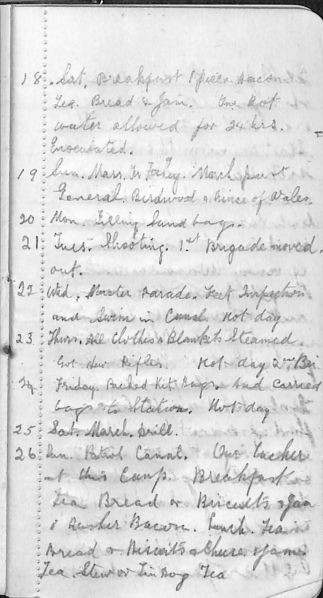 18. Sat. Breakfast 1 piece Bacon
Tea. Bread & Jam. One Bot
water allowed for 24 hrs.
19 Sun. Mass. Fr Fahy. March past
General. Birdwood & Prince of Wales.
20 Mon. Filling Sand bags.
21 Tues. Shooting. 1st Brigade moved
out.
22 Wed. Muster Parade. Feet Inspection
and Swim in Canal. Hot day
23 Thurs. All Clothes & Blankets Steamed.
Got New Rifles. Hot day 2nd
24 Friday. Packed Kit Bags. And carried
bags to Station. Hot day
25 Sat. March. Drill.
26 Sun. Patrol Canal. Our Tucker
at this Camp. Breakfast
Tea Bread or Biscuits & Jam
1 Rasher Bacon. Lunch. Tea
Bread or Biscuits & Cheese & Jam
Tea. Stew or Tin Dog Tea